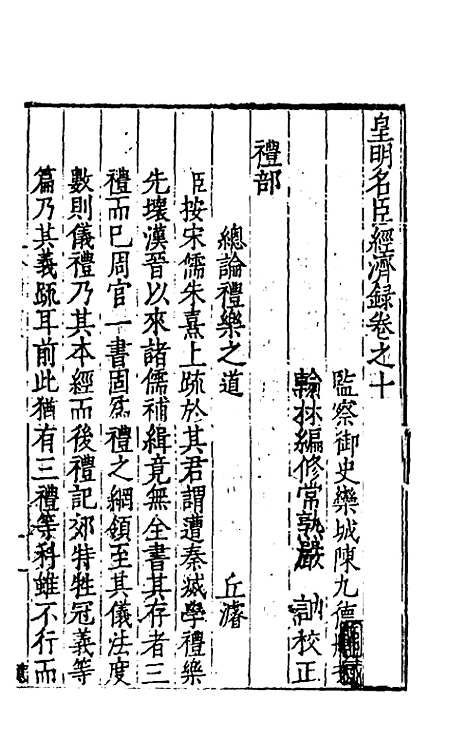 皇明名臣經濟録卷之十
監察御史欒城陳九德
翰林編修常熟嚴 訥校正
禮部
總論禮樂之道 丘濬
臣按宋儒朱熹上疏於其君謂遭秦滅學禮樂
先壞漢晉以來諸儒補緝竟無全書其存者三
禮而已周官一書固爲禮之綱領至其儀法度
數則儀禮乃其本經而後禮記郊特牲冠義等
篇乃其義疏耳前此猶有三禮等科雖不行而